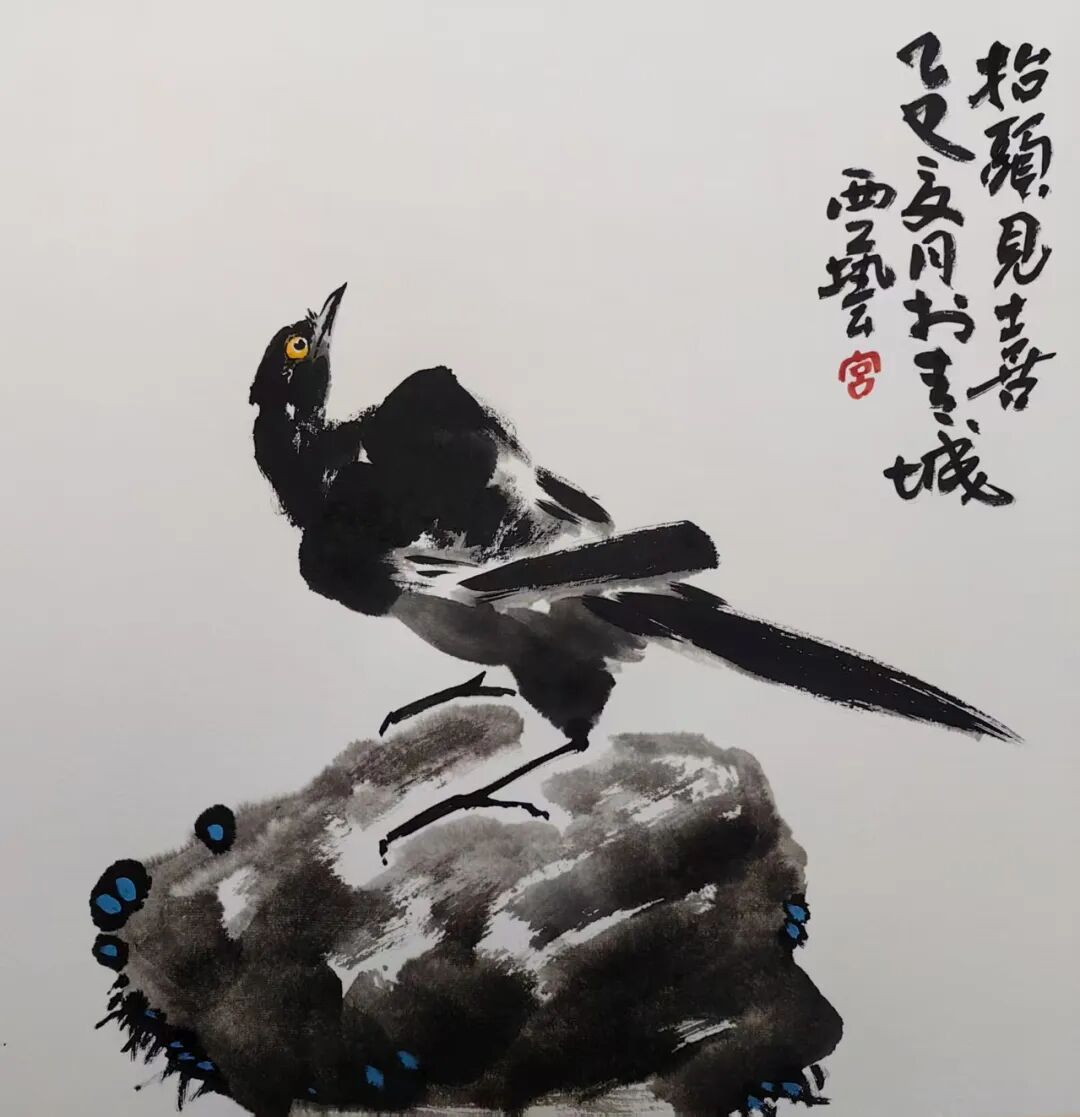 抬頭見喜
乙巳夏月於青城
西藝
宮